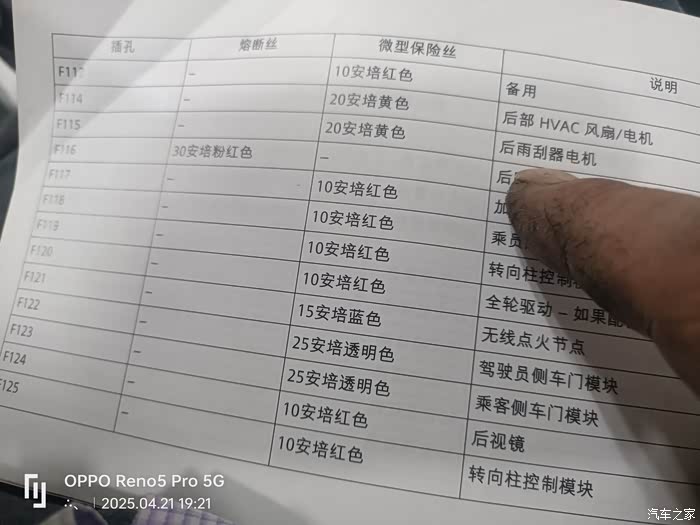 插孔 熔断丝 微型保险丝 说明
F113 – 10安培红色 备用
F114 – 20安培黄色 后部 HVAC 风扇/电机
F115 – 20安培黄色 后雨刮器电机
F116 30安培粉红色 – 后
F117 – 10安培红色 加
F118 – 10安培红色 乘员
F119 – 10安培红色 转向柱控制
F120 – 10安培红色 全轮驱动 – 如果配
F121 – 15安培蓝色 无线点火节点
F122 – 25安培透明色 驾驶员侧车门模块
F123 – 25安培透明色 乘客侧车门模块
F124 – 10安培红色 后视镜
F125 – 10安培红色 转向柱控制模块
OPPO Reno5 Pro 5G
2025.04.21 19:21
汽车之家